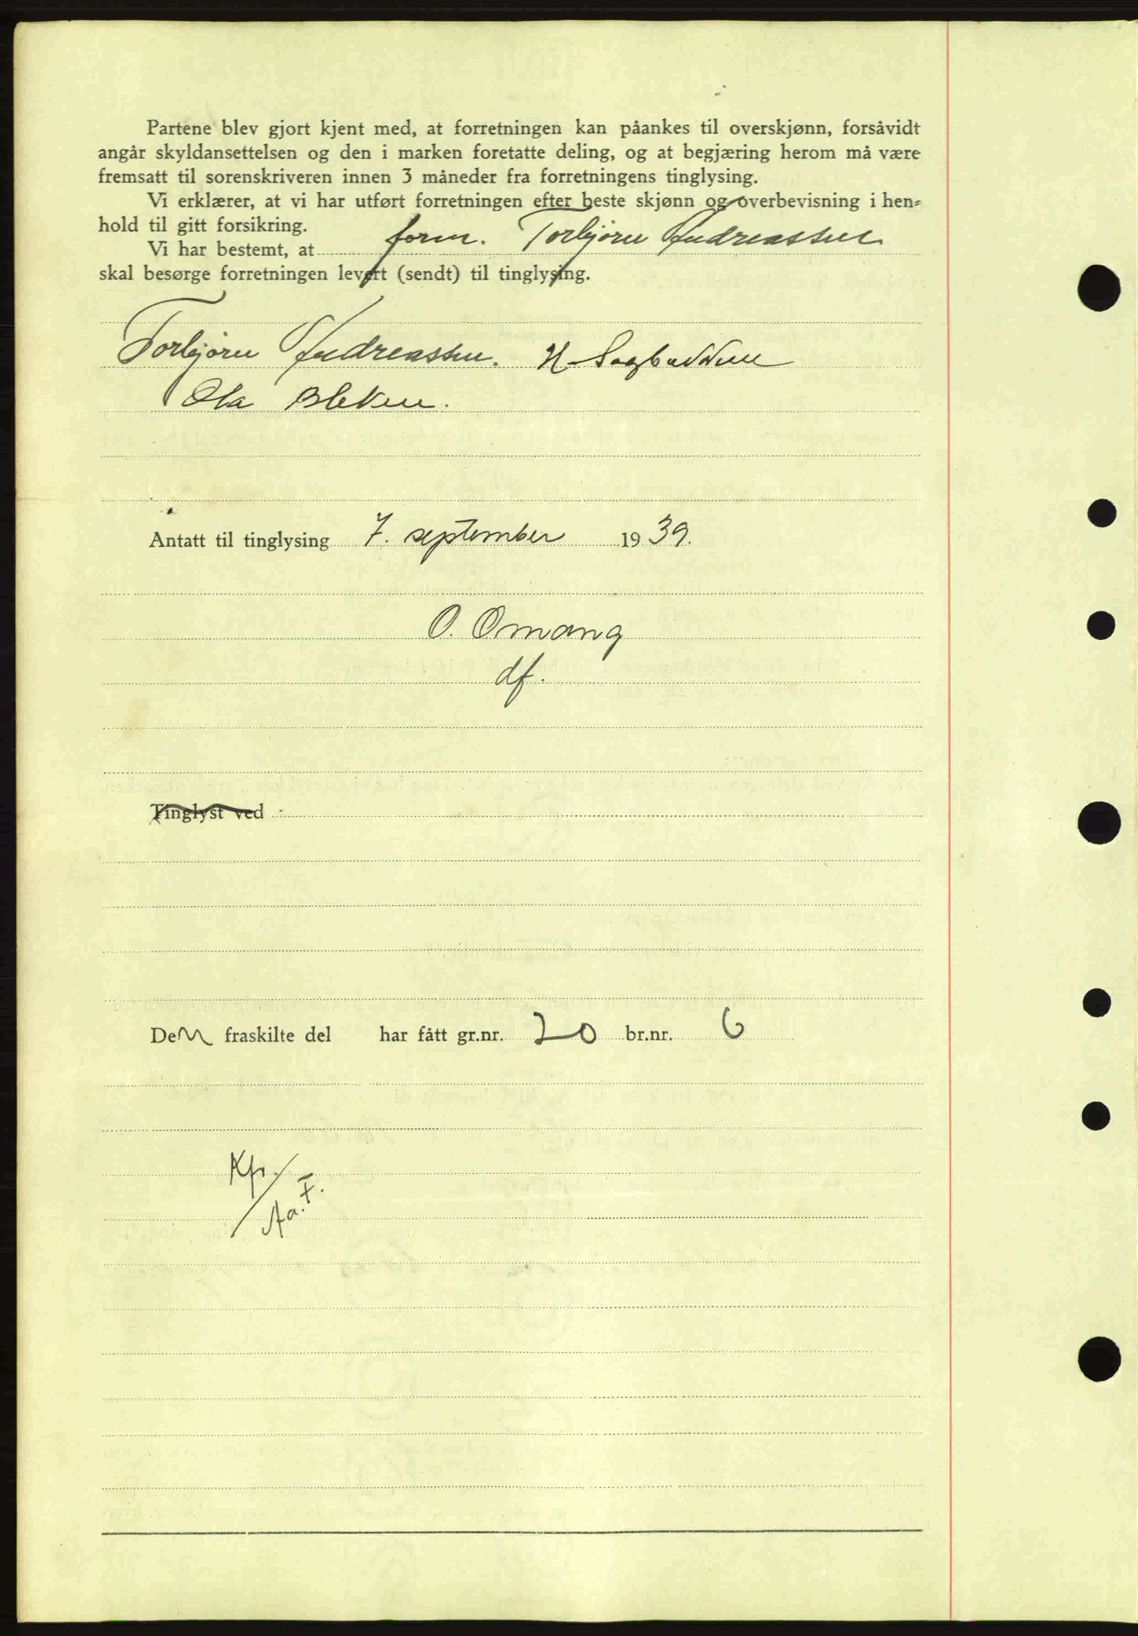 Partene blev gjort kjent med, at forretningen kan påankes til overskjønn, forsåvidt
angår skyldansettelsen og den i marken foretatte deling, og at begjæring herom må være
fremsatt til sorenskriveren innen 3 måneder fra forretningens tinglysing.
Vi erklærer, at vi har utført forretningen efter beste skjønn og overbevisning i hen-
hold til gitt forsikring.
Vi har bestemt, at form. Torbjørn Andreassen
skal besørge forretningen levert (sendt) til tinglysing.
Torbjørn Andreassen. H
Ola Bleken.
Antatt til tinglysing 7. september 1939.
O. Omang
df.
Tinglyst ved
Den fraskilte del har fått gr.nr. 20 br.nr. 6
Kfr.
Aa. F.